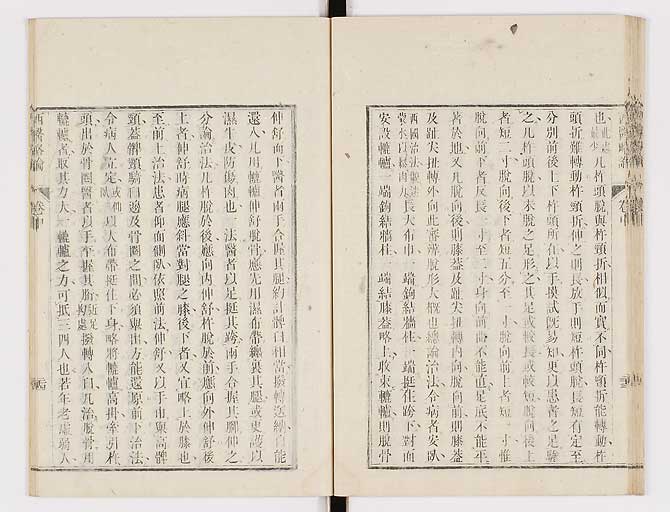 也此患最少凡杵頭脫與杵頸折相似而實不同杵頸折能轉動杵
頭折難轉動杵頸折伸之則長放手則短杵頭脫長短有定至
分別前後上下杵頭所在以手摸試旣易知更以患者之足騐
之凡杵頭脫以未脫之足形之其足或較長或較短脫向後上
者短二寸脫向後下者短五分至一寸脫向前上者短一寸惟
脫向前下者反長一寸至二寸身向前曲不能直足底不能平
著於地又凡脫向後則膝葢及趾尖扭轉內向脫向前則膝葢
及趾尖扭轉外向此審辨脫形大槪也總論治法令病者安臥
西國治法長大布巾一端鉤結牆柱一端挺住跨下對面
安設轆轤一端鉤結牆柱一端結膝葢略上收束轆轤則脫骨
伸舒而下醫者兩手合握其腿約計髀臼相當撥轉送納自能
還入凡用轆轤伸舒脫骨應先用濕布帶纏裹其腿或更護以
濕牛皮防傷肉也一法醫者以足挺其跨兩手合握其腳伸之
分論治法凡杵脫於後應向內伸舒杵脫於前應向外伸舒後
上者伸舒時病腿應斜當對腿之膝後下者又宜略上於膝也
至前上治法患者仰面側臥依照前法伸舒又以手巾兜高髀
頸葢髀頸騎囘邊及骨圈之間必須舉出方能還原前下治法
令病人坐定或仰臥以大布帶挺住下身略將轆轤高掛牽引杵
頭出於骨圈醫者以手平握其腳近足拗處撥轉入臼凡治脫骨用
轆轤者取其力大一轆轤之力可抵三四人也若年老虛弱人
西醫略論 卷中